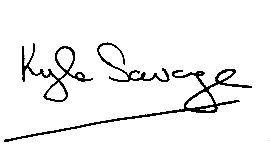 Kyle Savage